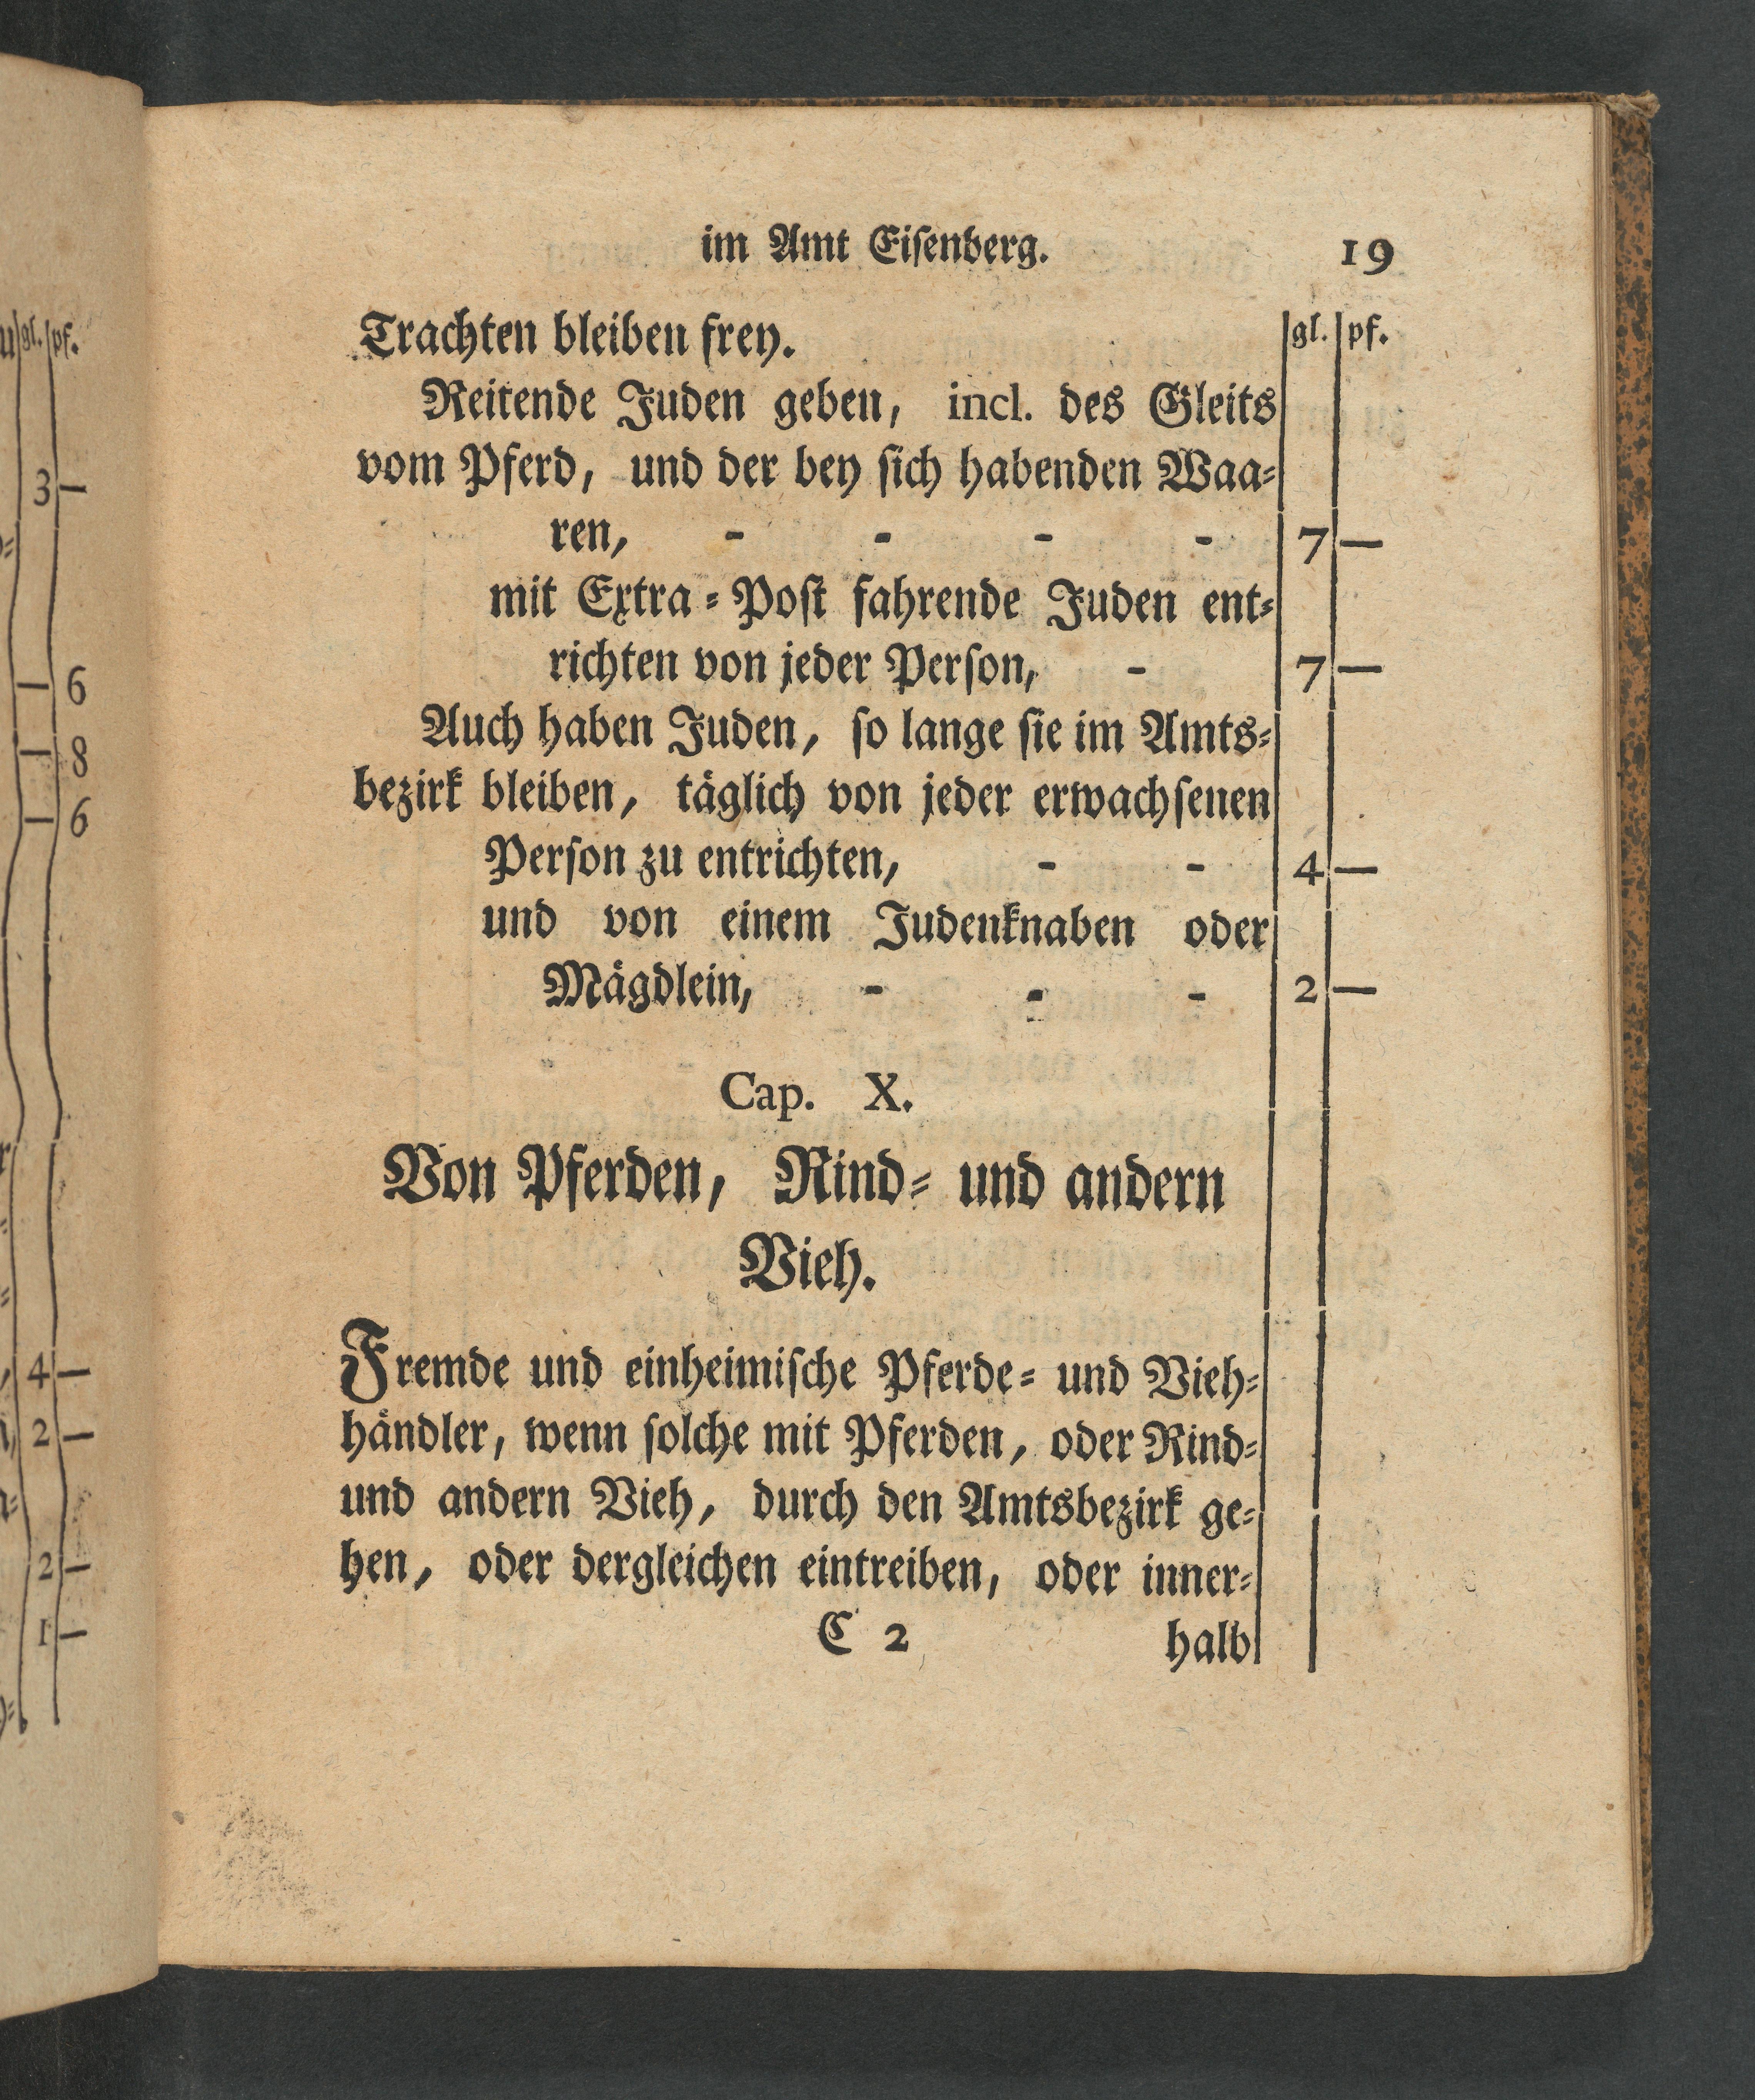 im Amt Eiſenberg. 19
Trachten bleiben frey. gl. pf.
Reitende Juden geben, incl. des Gleits
vom Pferd, und der bey ſich habenden Waa⸗
ren, - - - - 7 —
mit Extra⸗Poſt fahrende Juden ent⸗
richten von jeder Perſon, - 7 —
Auch haben Juden, ſo lange ſie im Amts⸗
bezirk bleiben, täglich von jeder erwachſenen
Perſon zu entrichten, - - 4 —
und von einem Judenknaben oder
Mägdlein, - - - 2 —
Cap. X.
Von Pferden, Rind⸗ und andern
Vieh.
Fremde und einheimiſche Pferde⸗ und Vieh⸗
händler, wenn ſolche mit Pferden, oder Rind⸗
und andern Vieh, durch den Amtsbezirk ge⸗
hen, oder dergleichen eintreiben, oder inner⸗
C 2 halb
gl. pf.
3 —
— 6
— 8
— 6
4 —
2 —
2 —
1 —